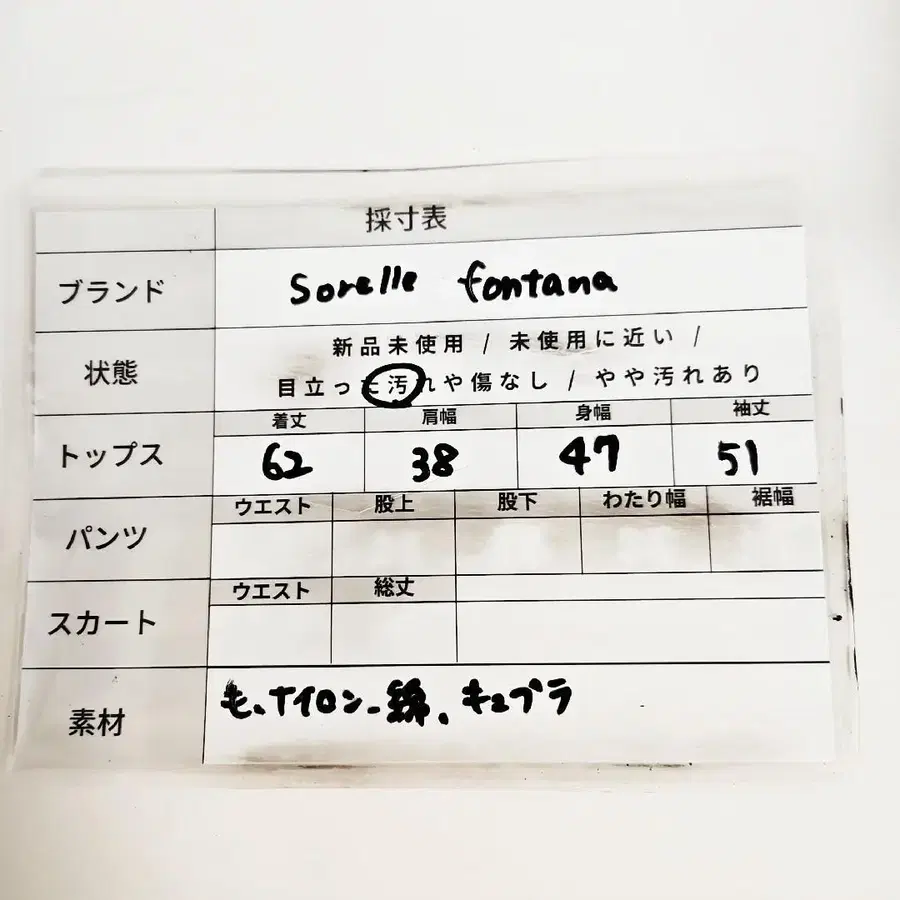 採寸表
ブランド Sorelle fontana
状態 新品未使用 / 未使用に近い /
目立った汚れや傷なし / やや汚れあり
トップス 着丈 肩幅 身幅 袖丈
62 38 47 51
パンツ ウエスト 股上 股下 わたり幅 裾幅
スカート ウエスト 総丈
素材 毛、ナイロン、綿、キュプラ